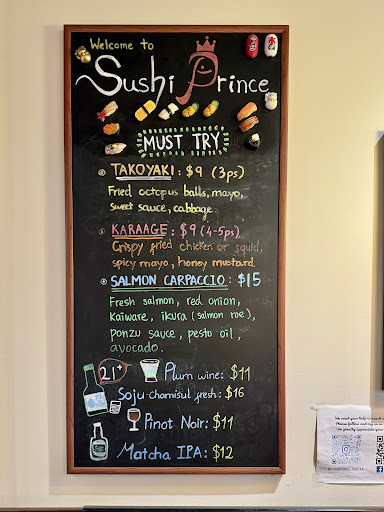 Welcome to
Sushi Prince
MUST TRY
TAKOYAKI: $9 (3ps)
Fried octopus balls, mayo,
sweet sauce, cabbage.
KARAAGE: $9 (4-5ps)
Crispy fried chicken or squid,
spicy mayo, honey mustard.
SALMON CARPACCIO: $15
Fresh salmon, red onion,
Kaiware, ikura (salmon roe),
ponzu sauce, pesto oil,
avocado.
21+
Plum wine: $11
Soju-chamisul fresh: $16
Pinot Noir: $11
Matcha IPA: $12